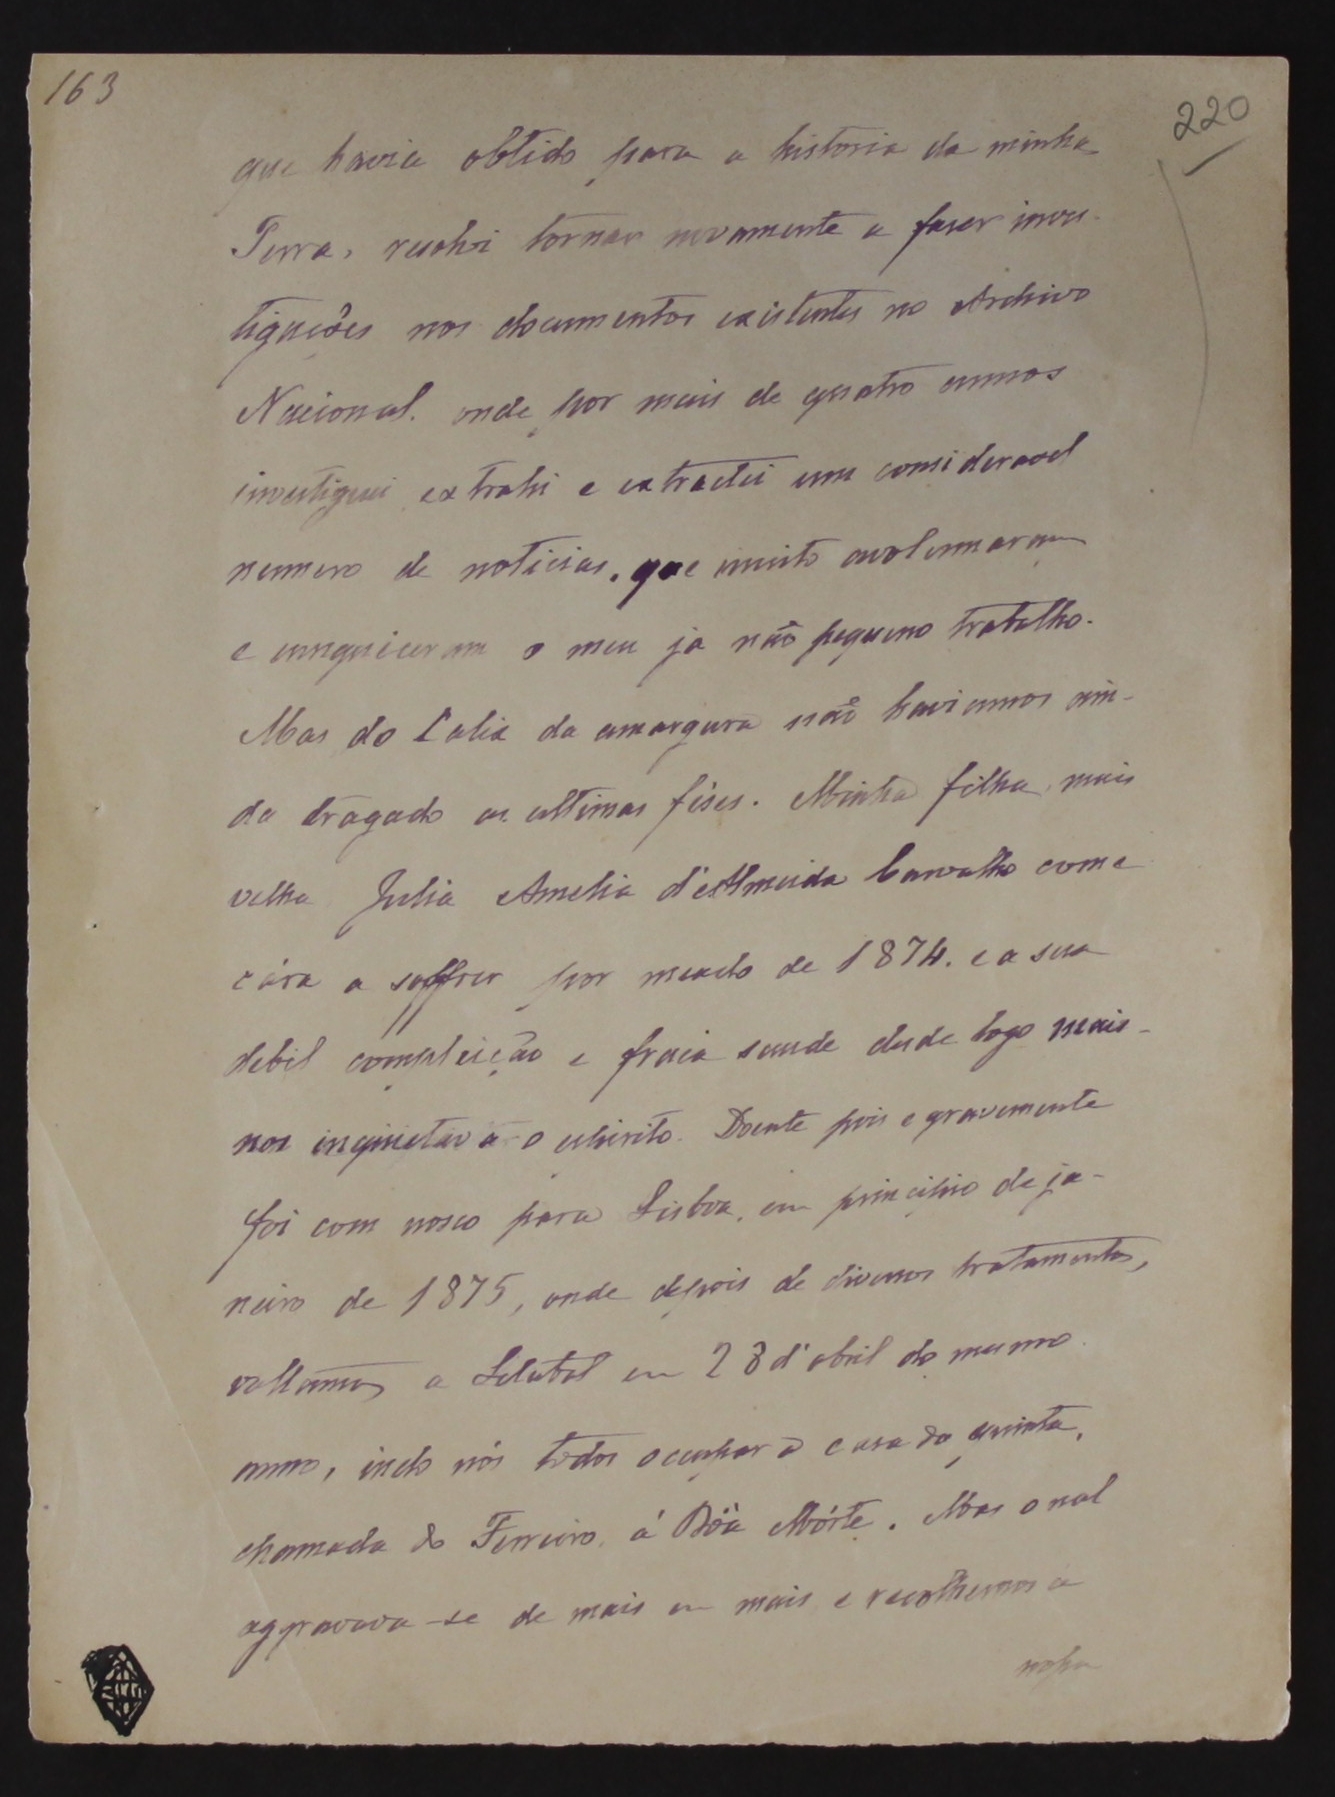 163
220
que havia obtido para a historia da minha
Terra, resolvi tornar novamente a faser inves-
tigações nos documentos existentes no Archivo
Nacional. onde por mais de quatro annos
investiguei extrahi e extractei um consideravel
numero de noticias, que muito avolumaram
e enriqueceram o meu já não pequeno trabalho.
Mas do Calix da amargura não haviamos ain-
da tragado as ultimas féses. Minha filha mais
velha Julia Amelia d'Almeida Carvalho come
cára a soffrer por meado de 1874. e a sua
debil compleição e fraca saude desde logo mais
nos inquietava o espirito. Doente pois e gravemente
foi com nosco para Lisboa, em principio de ja-
neiro de 1875, onde depois de diversos tratamentos,
voltamos a Setubal em 28 d'abril do mesmo
anno, indo nós todos occupar a casa da quinta,
chamada do Ferreiro, á Bôa Mórte. Mas o mal
aggravava-se de mais em mais e recolhemos á
nossa